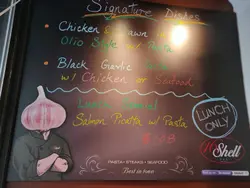 Signature Dishes
• Chicken & Prawn in
Olio Style w/
• Black Garlic
w/ Chicken or Seafood
Lunch Special
Salmon Picatta w/ Pasta
LUNCH
ONLY
Shell
PASTA • STEAKS • SEAFOOD